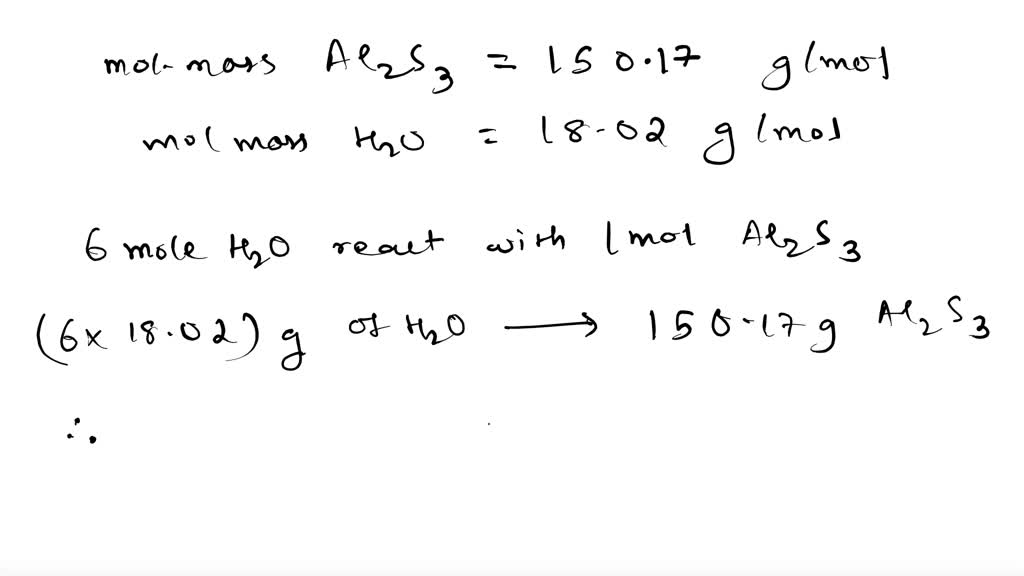 mol-mass Al₂S₃ = 150.17 g/mol
mol mass H₂O = 18.02 g/mol
6 mole H₂O react with 1 mol Al₂S₃
(6x 18.02) g of H₂O ⟶ 150.17 g Al₂S₃
∴